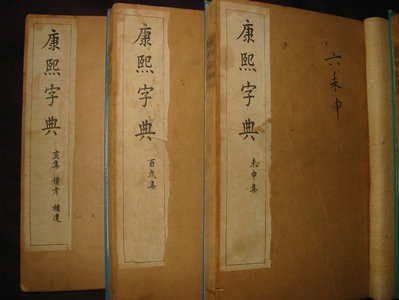 康熙字典
亥集 備考 補遺
康熙字典
酉戌集
康熙字典
未申集
六未申